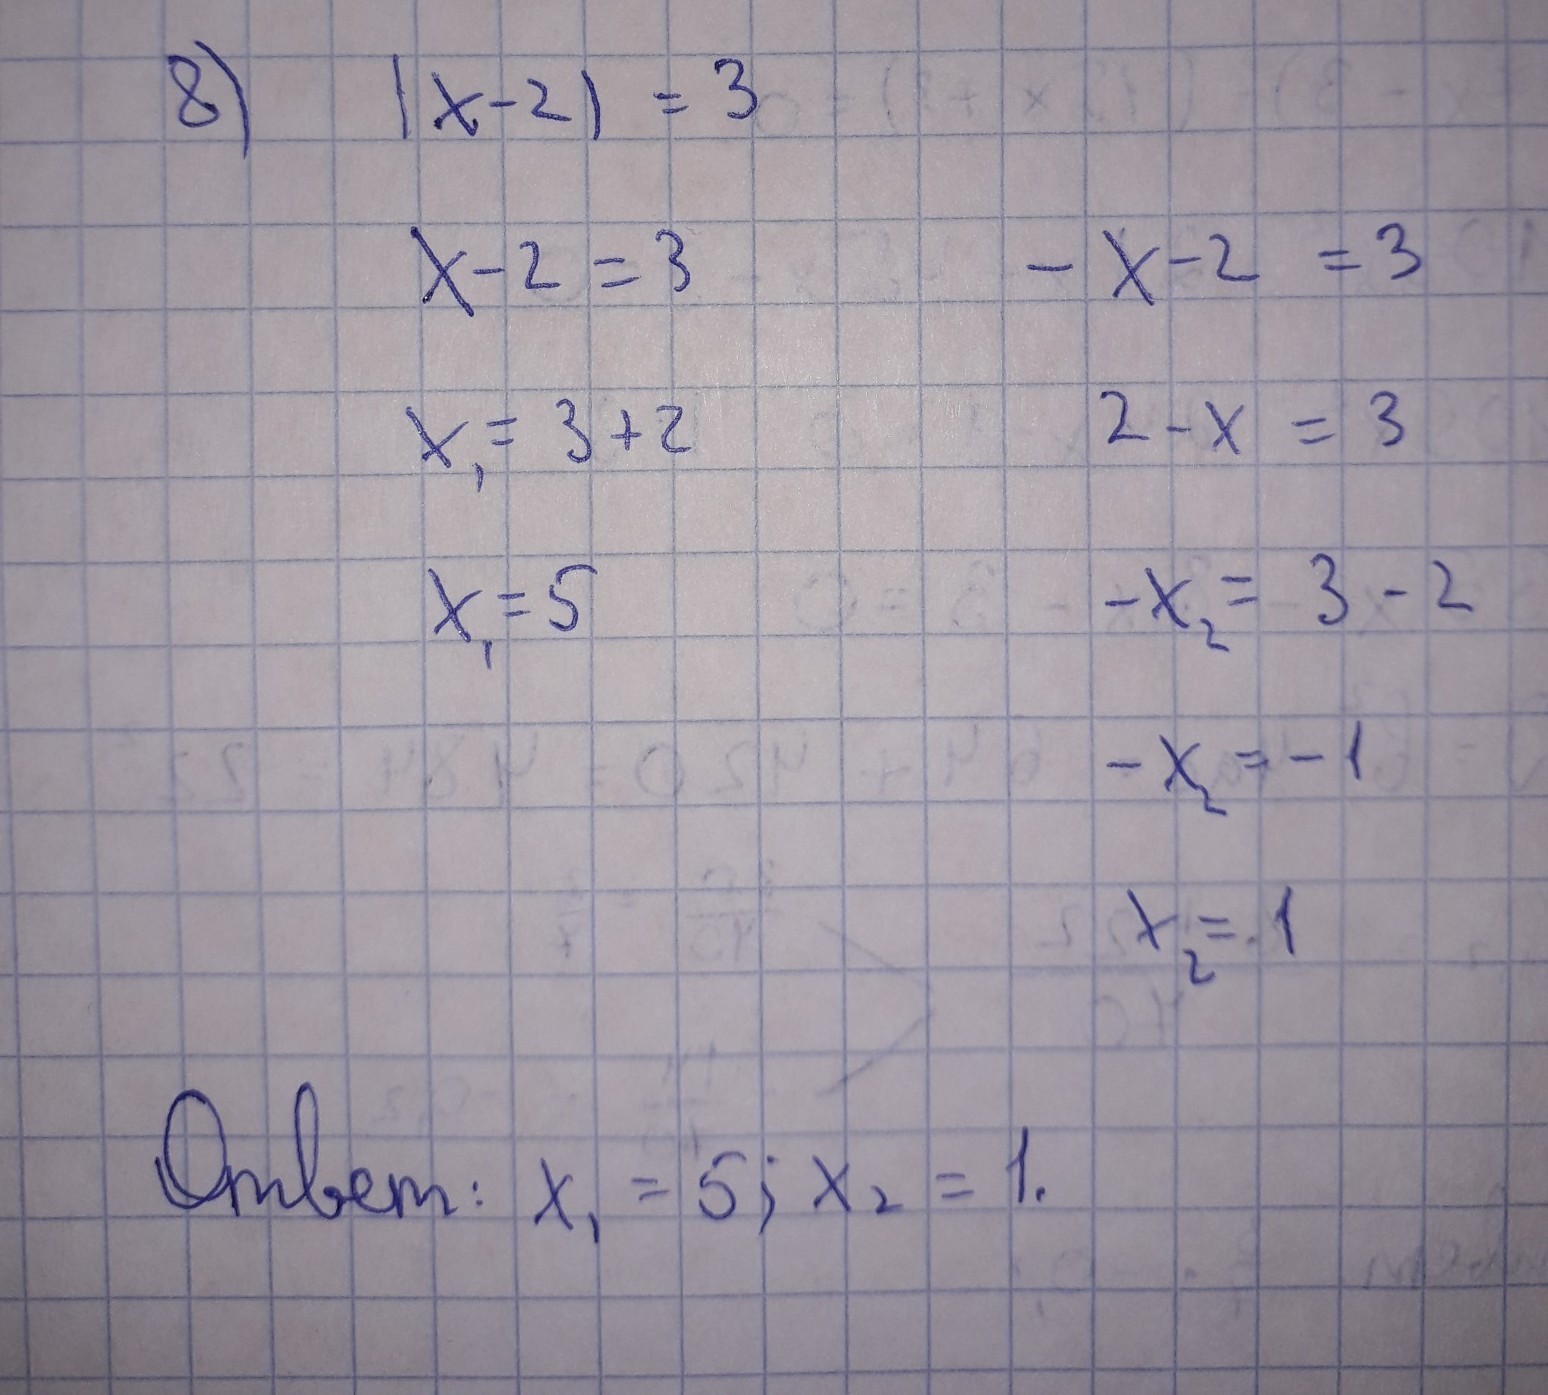 8) |x-2| = 3
x-2=3 -x-2 =3
x₁=3+2 2-x=3
x₁=5 -x₂=3-2
-x₂=-1
x₂=1
Ответ: x₁=5; x₂=1.